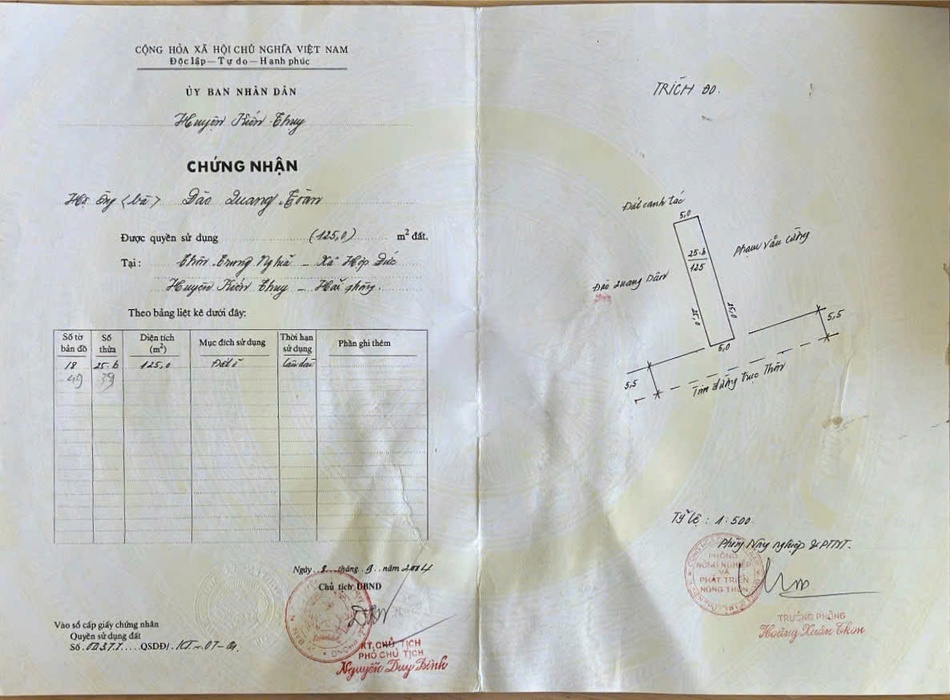 CỘNG HÒA XÃ HỘI CHỦ NGHĨA VIỆT NAM
Độc lập - Tự do - Hạnh phúc
ỦY BAN NHÂN DÂN
Huyện Kiến Thụy
CHỨNG NHẬN
Hộ Ông (bà) Đào Quang Toàn
Được quyền sử dụng (125,0) m² đất.
Tại: Thôn Trung Nghĩa - Xã Hợp Đức
Huyện Kiến Thụy - Hải phòng.
Theo bảng liệt kê dưới đây:
Số tờ bản đồ Số thửa Diện tích (m²) Mục đích sử dụng Thời hạn sử dụng Phần ghi thêm
18 25.b 125,0 Đất ở Lâu dài
49 39
Ngày 8 tháng 9 năm 2004
Chủ tịch UBND
KT. CHỦ TỊCH
PHÓ CHỦ TỊCH
Nguyễn Duy Bình
Vào sổ cấp giấy chứng nhận
Quyền sử dụng đất
Số QSDĐ/
TRÍCH ĐO.
Đất canh tác
5,0
25.b
125
Phạm Văn
Đào Quang Dân
25,0
25,0
5,0
5,5
5,5
Tim đường trục Thôn
Tỷ lệ: 1:500
Phòng Nông nghiệp & PTNT.
PHÒNG
NÔNG NGHIỆP
VÀ
PHÁT TRIỂN
NÔNG THÔN
TRƯỞNG PHÒNG
Hoàng Xuân